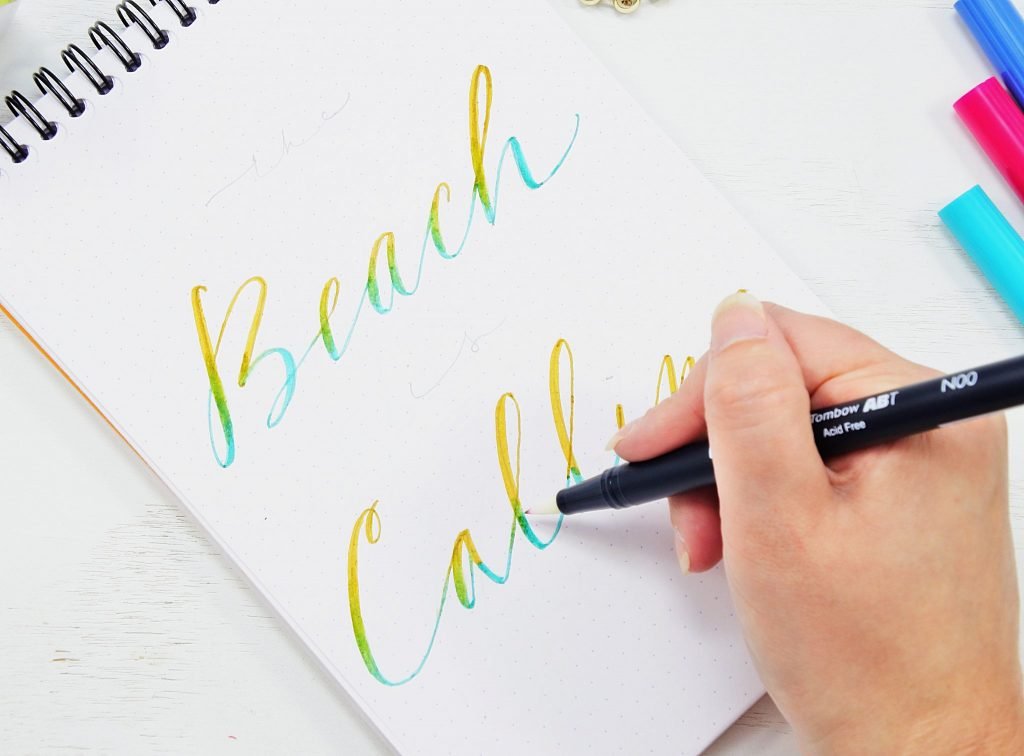 the
Beach
is
Call
Tombow ABT N00
Acid Free